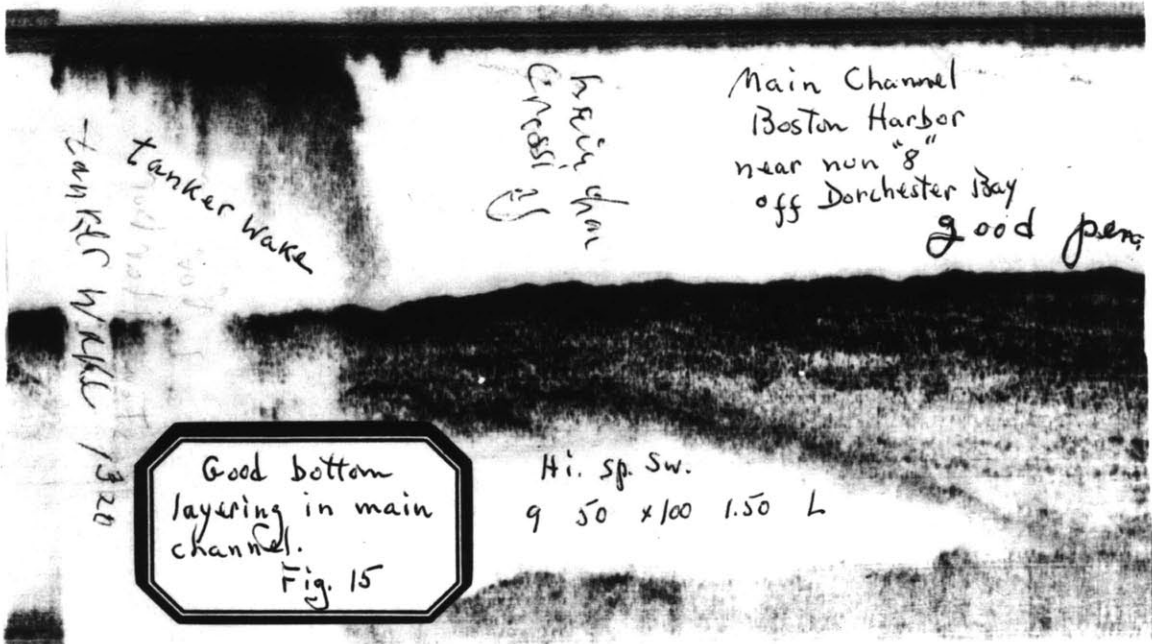 tanker wake 1320
tanker wake
main chan
Crossing
Main Channel
Boston Harbor
near nun "8"
off Dorchester Bay
good pen.
Good bottom
layering in main
channel.
Fig. 15
Hi. sp. Sw.
9 50 x100 1.50 L